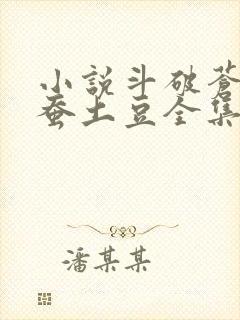 小說斗破蒼
蚕土豆全集
潘某某